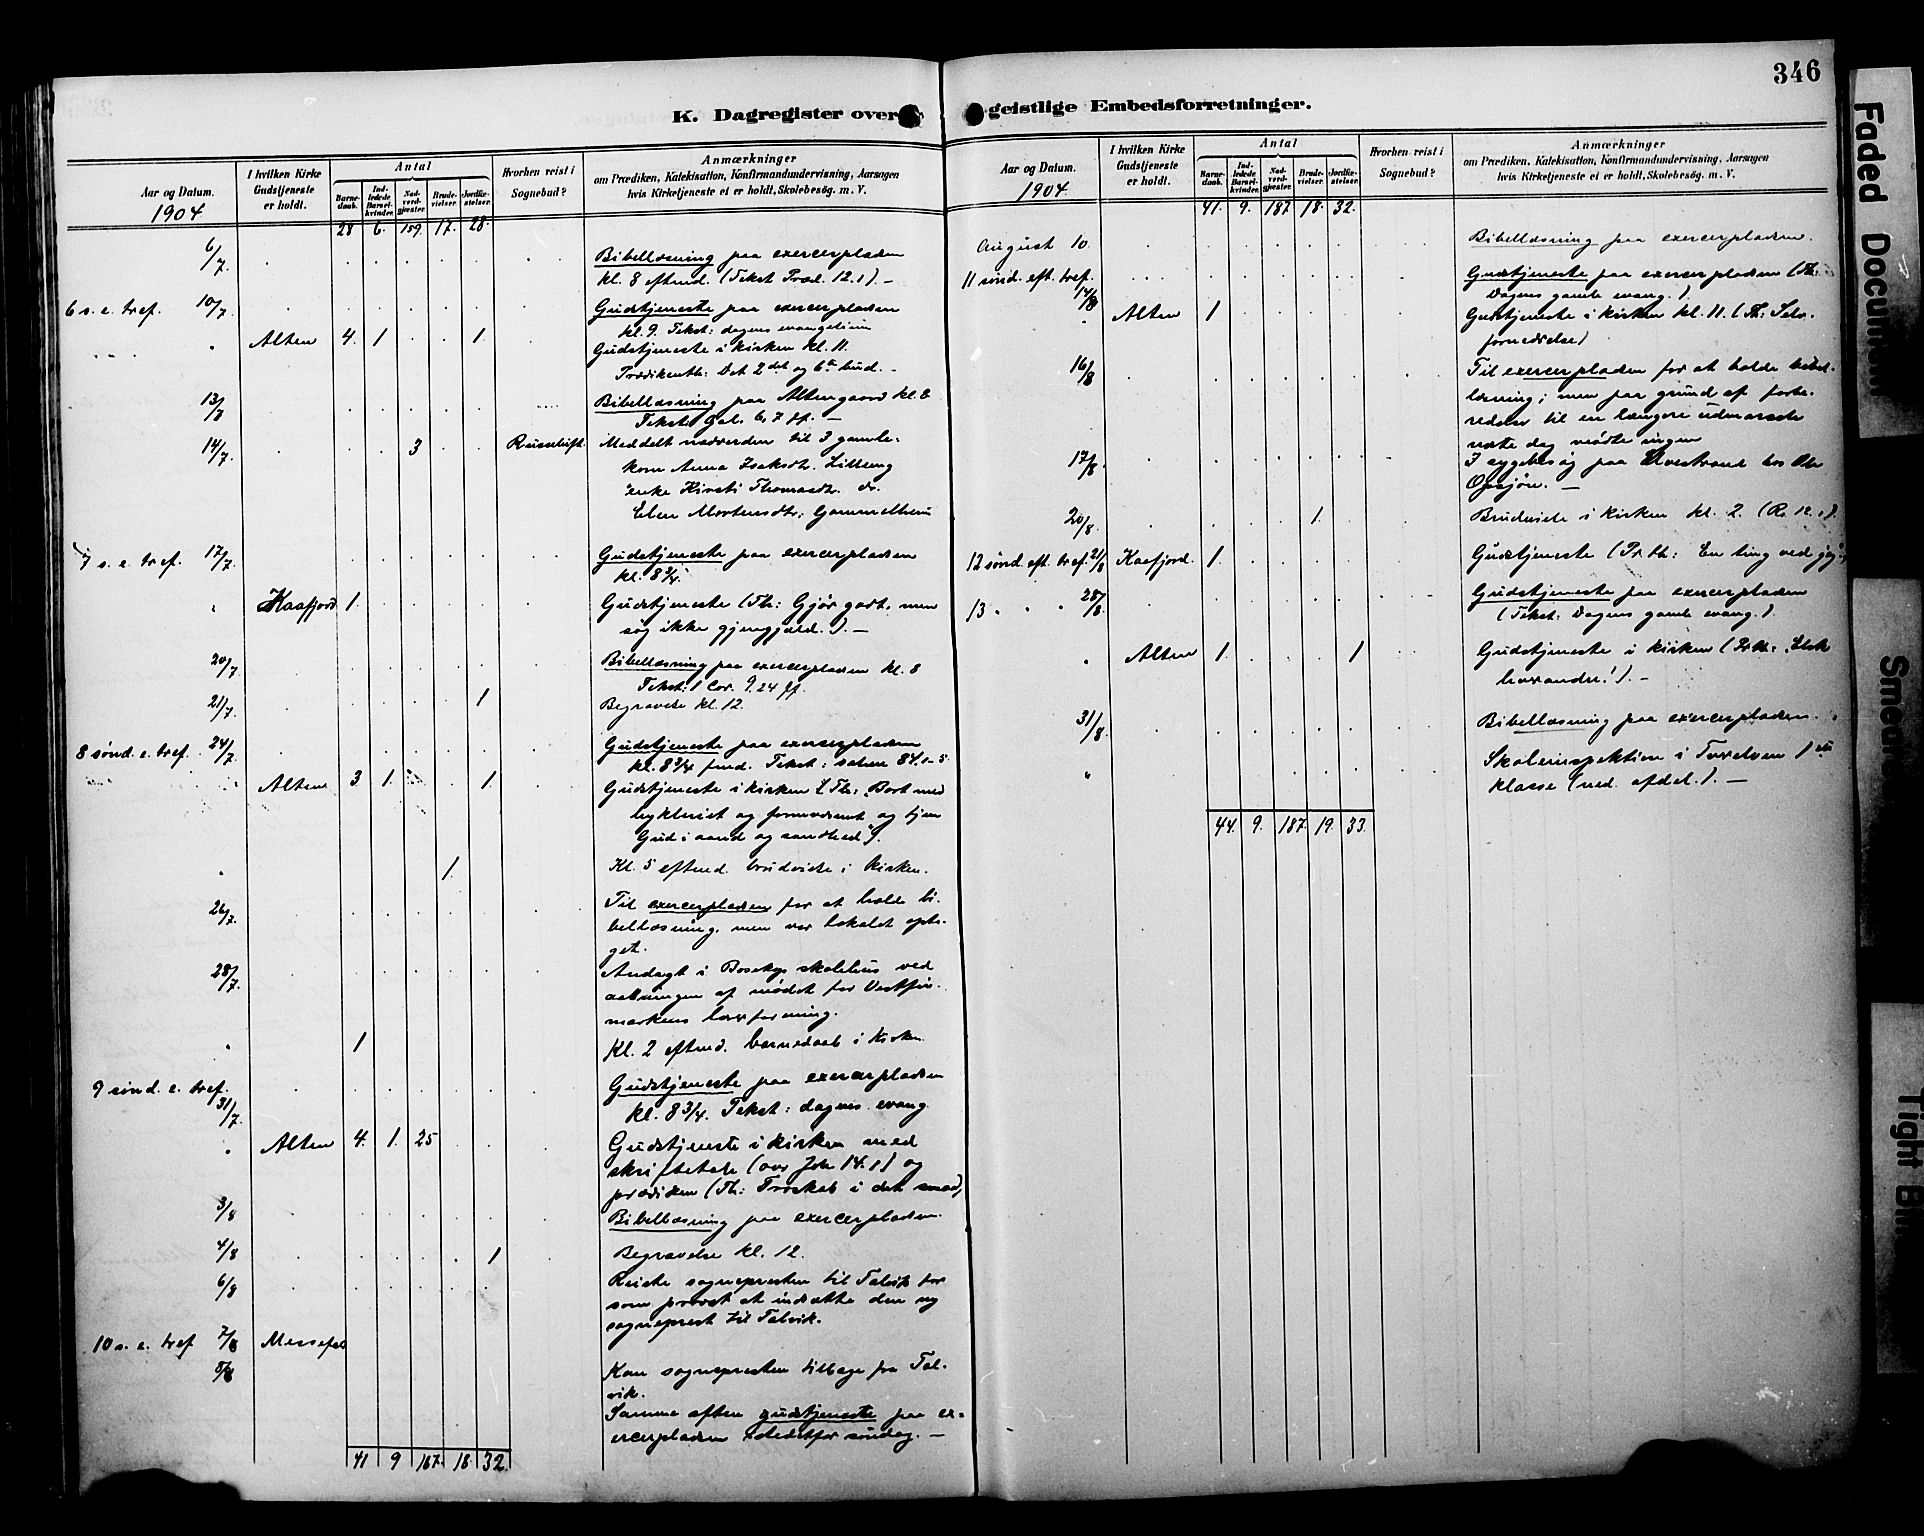 346
K. Dagregister over geistlige Embedsforretninger.
Aar og Datum. I hvilken Kirke Gudstjeneste er holdt. Antal Hvorhen reist i Sognebud? Anmærkninger
Barnedaab. Indledede Barselkvinder. Nadverdgjæster. Brudevielser. Jordfæstelser.
om Prædiken, Katekisation, Konfirmandundervisning, Aarsagen
hvis Kirketjeneste ei er holdt, Skolebesøg. m. V.
1904
28 6. 159. 17. 28.
6/7. Bibellæsning paa exercerpladsen
kl. 8 eftmd. (Tekst Præd. 12.1). —
6 s. e. tref. 10/7. Gudstjeneste paa exercerpladsen
kl. 9. Tekst: dagens evangelium
" Alten 4. 1 1. Gudstjeneste i kirken kl. 11.
Prædikenth: Det 2det og 6te bud. -
13/7 Bibellæsning paa Altengaard kl. 8
Tekst: Gal. 6,7 ff. —
14/7. 3 Meddelt nadverden til 3 gamle:
kone Anna Isaksdtr.
enke Kirsti Thomasdtr. do.
Elen Mortensdtr.
7 s. e. tref. 17/7. Gudstjeneste paa exercerpladsen
kl. 8 3/4.
" Kaafjord 1. Gudstjeneste (Th: Gjør godt, men
søg ikke gjengjæld.). —
20/7. Bibellæsning paa exercerpladsen kl. 8
Tekst: 1 Cor. 9.24 ff.
21/7. 1 Begravelse kl. 12.
8 sønd. e. tref. 24/7. Gudstjeneste paa exercerpladsen
kl. 8 3/4 fmd. Tekst: salme 84.1-5
" Alten 3 1. 1. Gudstjeneste i kirken (Th: Bort med
hykleriet og fornemhed og tjen
Gud i aand og sandhed").
" 1. Kl. 5 eftmd. brudvielse i kirken.
26/7. Til exercerpladsen for at holde bi-
bellæsning, men var lokalet opta-
get.
28/7. Andagt i Bosekop skolehus ved
aabningen af mødet for Vestfin-
markens lærerforening.
" 1 Kl. 2 eftmd. barnedaab i kirken.
9 sønd. e. tref. 31/7. Gudstjeneste paa exercerpladsen
kl. 8 3/4. Tekst: dagens evang.
" Alten 4. 1. 25 Gudstjeneste i kirken med
skriftetale (over Joh 14.1) og
prædiken (Th: Troskab i det smaa)
3/8 Bibellæsning paa exercerpladsen.
4/8 1 Begravelse kl. 12.
6/8 Reiste sognepresten til Talvik for
som provst at indsætte den ny
sogneprest til Talvik.
10 s. e. tref 7/8 Messefal
8/8 Kom sognepresten tilbage fra Tal-
vik.
Samme aften gudstjeneste paa ex-
ercerpladsen istedetfor søndag. —
41 9 187. 18 32.
Aar og Datum. I hvilken Kirke Gudstjeneste er holdt. Antal Hvorhen reist i Sognebud? Anmærkninger
Barnedaab. Indledede Barselkvinder. Nadverdgjæster. Brudevielser. Jordfæstelser.
om Prædiken, Katekisation, Konfirmandundervisning, Aarsagen
hvis Kirketjeneste ei er holdt, Skolebesøg. m. V.
1904
41. 9. 187 18. 32.
August 10. Bibellæsning paa exercerpladsen.
11 sønd. eft. tref. 14/8 Gudstjeneste paa exercerpladsen (Th:
Dagens gamle evang.).
" Alten 1 Gudstjeneste i kirken kl. 11. (Th: Selv-
fornedrelse)
16/8 Til exercerpladsen for at holde bibel-
læsning; men paa grund af forbe-
redelser til en længere udmarsch
næste dag mødte ingen
17/8. I sygebesøg paa Elvestrand hos Ole
Opsjøn. —
20/8. 1. Brudvielse i kirken kl. 2. (Ro 12.)
12 sønd. eft. tref. 21/8 Kaafjord. 1. Gudstjeneste (Pr.th: En ting ved jeg
13 " " 28/8. Gudstjeneste paa exercerpladsen
(Tekst: Dagens gamle evang.).
" Alten 1. 1 Gudstjeneste i kirken (Pr.th: "Elsk
hverandre!"). -
31/8. Bibellæsning paa exercerpladsen.
" Skoleinspektion i Tverelven 1ste
klasse (ned. afdel.). —
44. 9. 187. 19. 33.
Faded Document
Tight Bi